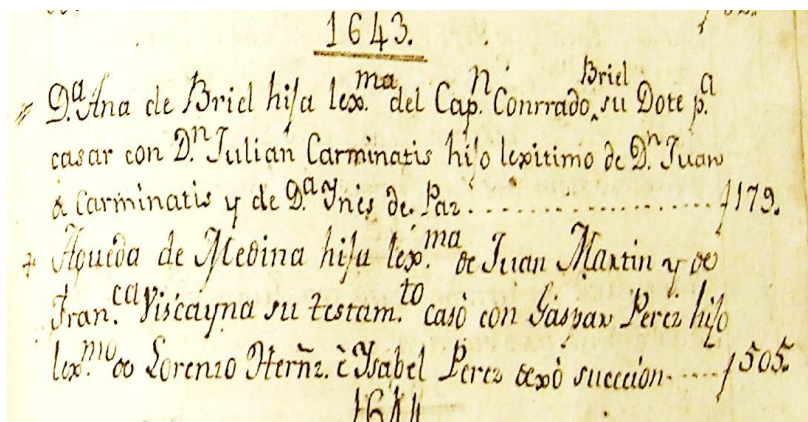 1643.
D.ª Ana de Briel hija lex.ma del Cap.n Conrrado Briel su Dote p.a
casar con D.n Julian Carminatis hijo lexitimo de D.n Juan
de Carminatis y de D.ª Ynés de Paz.......................f 179.
Agueda de Medina hija lex.ma de Juan Martin y de
Fran.ca Viscayna su testam.to casò con Gaspar Perez hijo
lex.mo de Lorenzo Herñz. è Ysabel Perez dexò succecion.....f 505.
1644